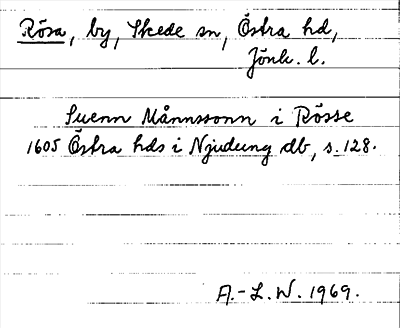 Rösa, by, Skede sn, Östra hd,
Jönk. l.
Suenn Månnssonn i Rösse
1605 Östra hds i Njudung db, s. 128.
A.-L. W. 1969.